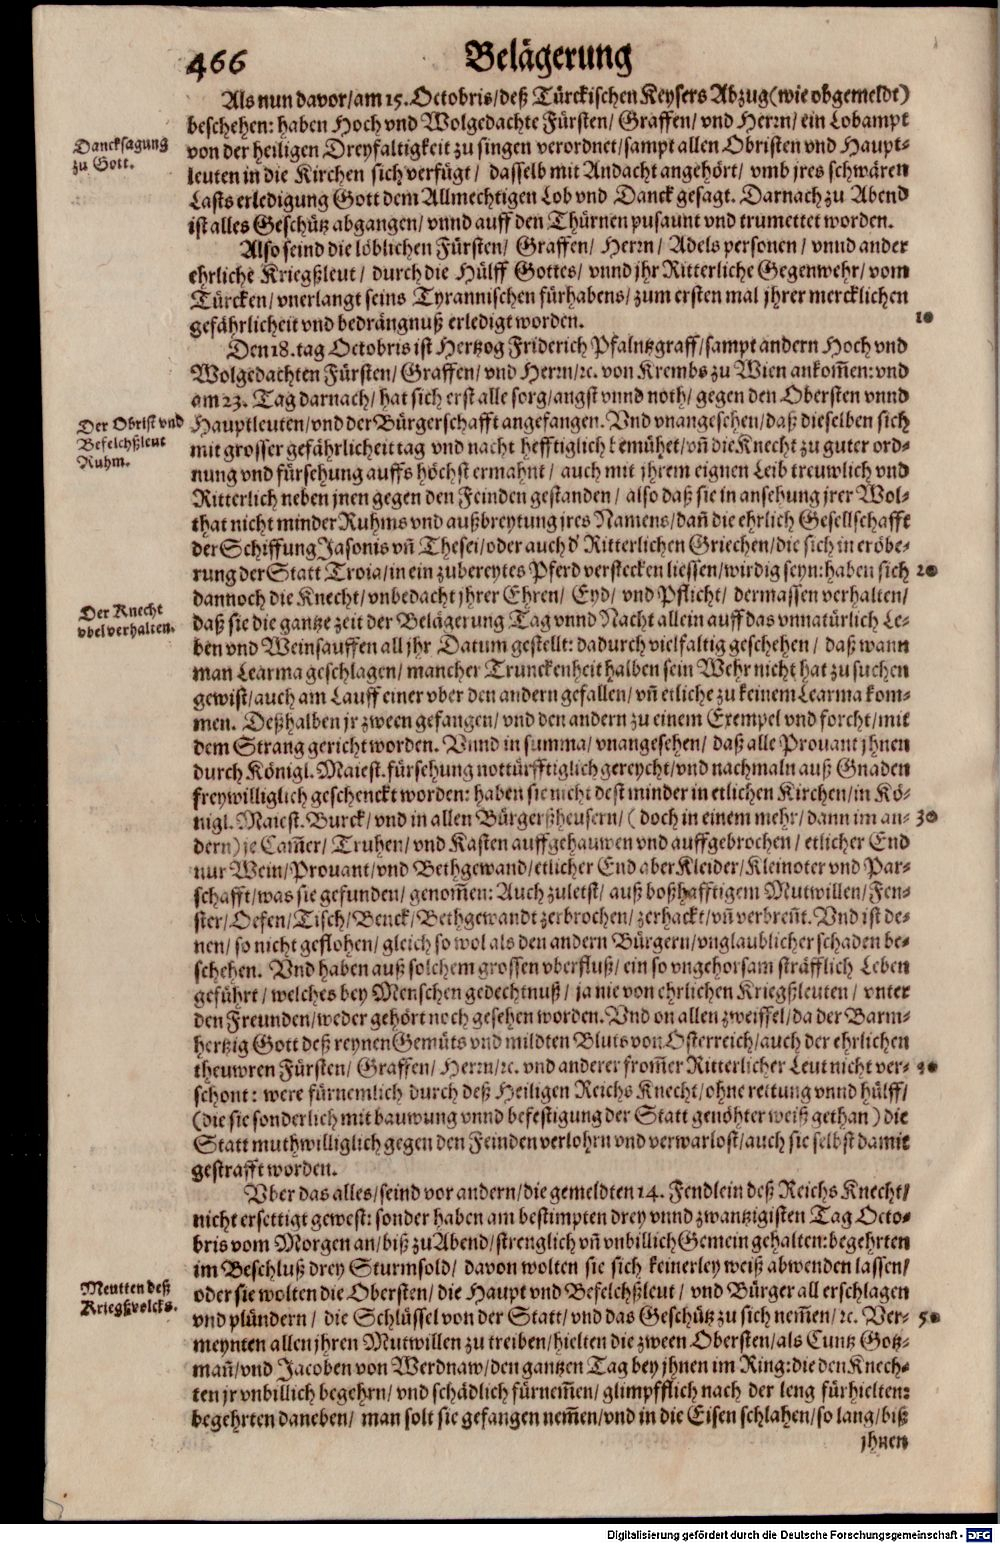 466 Belägerung
Als nun davor/am 15. Octobris/deß Türckischen Keysers Abzug (wie obgemeldt)
beschehen: haben Hoch vnd Wolgedachte Fürsten/ Graffen/ vnd Herrn/ ein Lobampt
von der heiligen Dreyfaltigkeit zu singen verordnet/sampt allen Obristen vnd Haupt-
leuten in die Kirchen sich verfügt/ dasselb mit Andacht angehört/ vmb jres schwären
Lasts erledigung Gott dem Allmechtigen Lob vnd Danck gesagt. Darnach zu Abend
ist alles Geschütz abgangen/ vnnd auff den Thürnen pusaunt vnd trumettet worden.
Dancksagung
zu Gott.
Also seind die löblichen Fürsten/ Graffen/ Herrn/ Adels personen/ vnnd ander
ehrliche Kriegßleut/ durch die Hülff Gottes/ vnnd jhr Ritterliche Gegenwehr/ vom
Türcken/ vnerlangt seins Tyrannischen fürhabens/ zum ersten mal jhrer mercklichen
gefährlicheit vnd bedrängnuß erledigt worden. 10
Den 18. tag Octobris ist Hertzog Friderich Pfalntzgraff/sampt andern Hoch vnd
Wolgedachten Fürsten/ Graffen/ vnd Herrn/ꝛc. von Krembs zu Wien ankom̃en: vnd
am 23. Tag darnach/ hat sich erst alle sorg/angst vnnd noth/ gegen den Obersten vnnd
Hauptleuten/vnd der Bürgerschafft angefangen. Vnd vnangesehen/daß dieselben sich
mit grosser gefährlicheit tag vnd nacht hefftiglich bemühet/vñ die Knecht zu guter ord-
nung vnd fürsehung auffs höchst ermahnt/ auch mit jhrem eignen Leib treuwlich vnd
Ritterlich neben jnen gegen den Feinden gestanden/ also daß sie in ansehung jrer Wol-
that nicht minder Ruhms vnd außbreytung jres Namens/dañ die ehrlich Gesellschafft
der Schiffung Jasonis vñ Thesei/oder auch d' Ritterlichen Griechen/die sich in eröbe-
rung der Statt Troia/in ein zubereytes Pferd verstecken liessen/wirdig seyn: haben sich 20
dannoch die Knecht/ vnbedacht jhrer Ehren/ Eyd/ vnd Pflicht/ dermassen verhalten/
daß sie die gantze zeit der Belägerung Tag vnnd Nacht allein auff das vnnatürlich Le-
ben vnd Weinsauffen all jhr Datum gestellt: dadurch vielfaltig geschehen/ daß wann
man Learma geschlagen/ mancher Trunckenheit halben sein Wehr nicht hat zu suchen
gewist/auch am Lauff einer vber den andern gefallen/ vñ etliche zu keinem Learma kom-
men. Deßhalben jr zween gefangen/ vnd den andern zu einem Exempel vnd forcht/mit
dem Strang gericht worden. Vnnd in summa/ vnangesehen/ daß alle Prouant jhnen
durch Königl. Maiest. fürsehung nottürfftiglich gereycht/vnd nachmaln auß Gnaden
freywilliglich geschenckt worden: haben sie nicht dest minder in etlichen Kirchen/in Kö-
nigl. Maiest. Burck/ vnd in allen Bürgerßheusern/ (doch in einem mehr/ dann im an- 30
dern) je Cam̃er/ Truhen/ vnd Kasten auffgehauwen vnd auffgebrochen/ etlicher End
nur Wein/Prouant/vnd Bethgewand/etlicher End aber Kleider/Kleinoter vnd Par-
schafft/was sie gefunden/ genom̃en: Auch zuletst/ auß boßhafftigem Mutwillen/Fen-
ster/Oefen/Tisch/Benck/Bethgewandt zerbrochen/ zerhackt/vñ verbreñt. Vnd ist de-
nen/ so nicht geflohen/ gleich so wol als den andern Bürgern/vnglaublicher schaden be-
schehen. Vnd haben auß solchem grossen vberfluß/ ein so vngehorsam sträfflich Leben
geführt/ welches bey Menschen gedechtnuß/ ja nie von ehrlichen Kriegßleuten/ vnter
den Freunden/weder gehört noch gesehen worden. Vnd on allen zweiffel/da der Barm-
hertzig Gott deß reynen Gemüts vnd mildten Bluts von Osterreich/auch der ehrlichen
theuwren Fürsten/ Graffen/ Herrn/ꝛc. vnd anderer from̃er Ritterlicher Leut nicht ver-
schont: were fürnemlich durch deß Heiligen Reichs Knecht/ohne rettung vnnd hülff/
(die sie sonderlich mit bauwung vnnd befestigung der Statt genöhter weiß gethan) die
Statt muthwilliglich gegen den Feinden verlohrn vnd verwarlost/auch sie selbst damit
gestrafft worden.
Der Obrist vnd
Befelchßleut
Ruhm.
Der Knecht
vbel verhalten.
Vber das alles/seind vor andern/die gemeldten 14. Fendlein deß Reichs Knecht/
nicht ersettigt gewest: sonder haben am bestimpten drey vnnd zwantzigisten Tag Octo-
bris vom Morgen an/biß zu Abend/strenglich vñ vnbillich Gemein gehalten: begehrten
im Beschluß drey Sturmsold/ davon wolten sie sich keinerley weiß abwenden lassen/
oder sie wolten die Obersten/ die Haupt vnd Befelchßleut/ vnd Bürger all erschlagen
vnd plündern/ die Schlüssel von der Statt/vnd das Geschütz zu sich nem̃en/ꝛc. Ver- 50
meynten allen jhren Mutwillen zu treiben/hielten die zween Obersten/als Cuntz Gotz-
mañ/vnd Jacoben von Werdnaw/den gantzen Tag bey jhnen im Ring: die den Knech-
ten jr vnbillich begehrn/ vnd schädlich fürnem̃en/ glimpfflich nach der leng fürhielten:
begehrten daneben/ man solt sie gefangen nem̃en/vnd in die Eisen schlahen/so lang/biß
jhnen
Meutten deß
Kriegßvolcks.
Digitalisierung gefördert durch die Deutsche Forschungsgemeinschaft - DFG